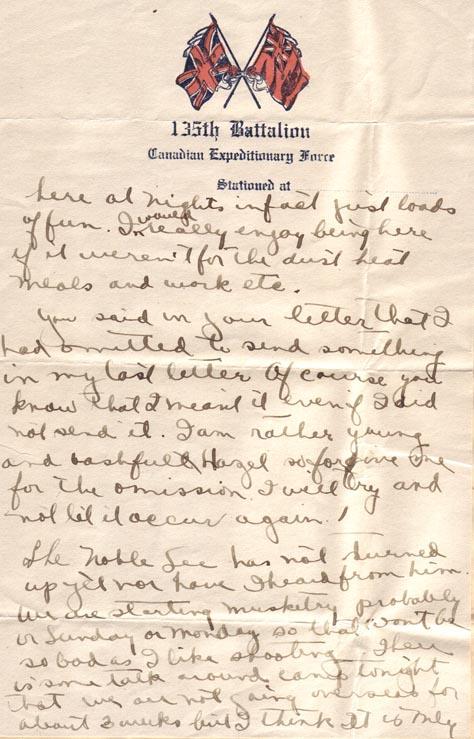 135th Battalion
Canadian Expeditionary Force
Stationed at
here at nights in fact just loads
of fun. I would really enjoy being here
if it weren't for the dust heat
meals and work etc.
You said in your letter that I
had omitted to send something
in my last letter Of course you
know that I meant it even if I did
not send it. I am rather young
and bashfull Hazel so forgive me
for the omission I will try and
not let it occur again. /
The Noble Lee has not turned
up yet nor have I heard from him.
We are starting musketry probably
or Sunday or Monday so that wont be
so bad as I like shooting. There
is some talk around camp tonight
that we are not going overseas for
about 3 weeks but I think it is only